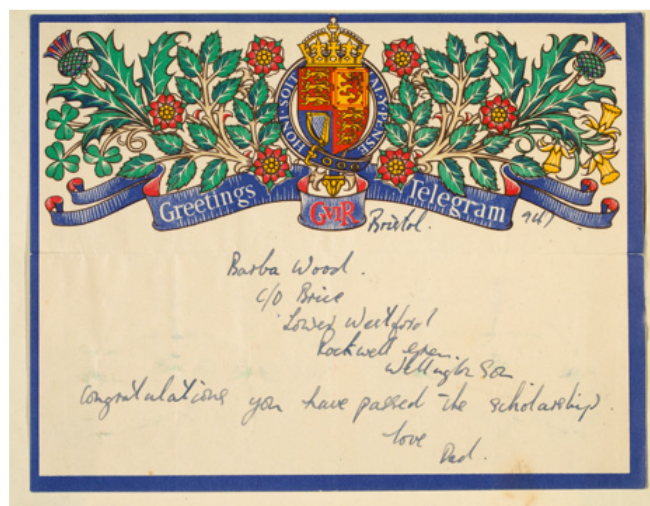 HONI · SOIT · Q · Y · PENSE
Greetings GVIR Telegram
Bristol. 947
Barba Wood.
c/o Brice
Lower Westford
Rockwell Green.
Wellington Som
Congratulations you have passed the scholarship.
love
Dad.